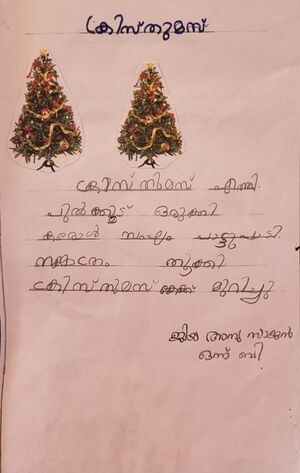 ക്രിസ്തുമസ്
ക്രിസ്തുമസ് എത്തി.
പുൽക്കൂട് ഒരുക്കി
കരോൾ സംഘം പാട്ടുപാടി.
നക്ഷത്രം തൂക്കി
ക്രിസ്തുമസ് കേക്ക് മുറിച്ചു
സാജൻ
ഒന്ന് ബി